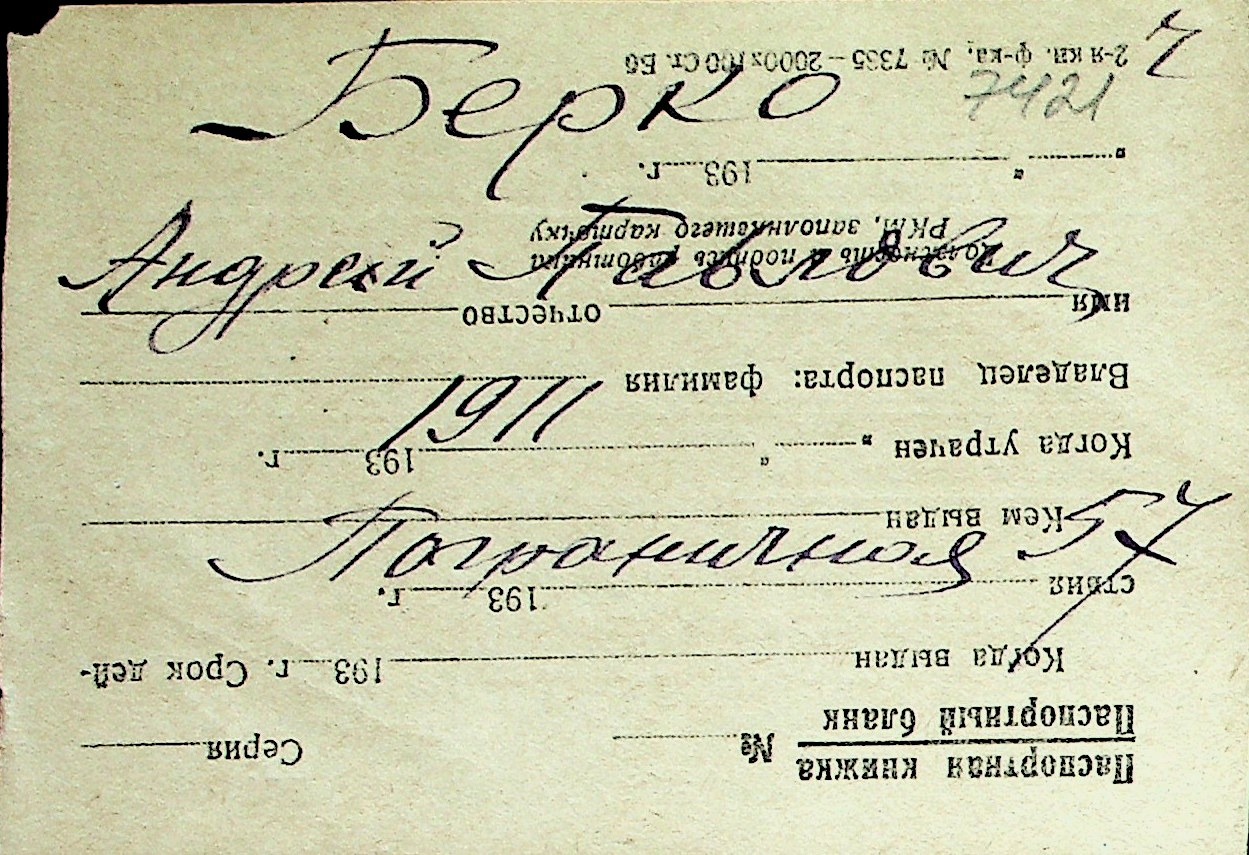 Берко
7421
Андрей Павлович
1911
Пограничная 57
Паспортная книжка
Паспортный бланк № Серия
Когда выдан 193 г. Срок дей-
ствия 193 г.
Кем выдан
Когда утрачен „ “ 193 г.
Владелец паспорта: фамилия
имя отчество
Должность и подпись работника
РКМ, заполнившего карточку
„ “ 193 г.
2-я кн. ф-ка, № 7335—2000х100 Ст. Бб